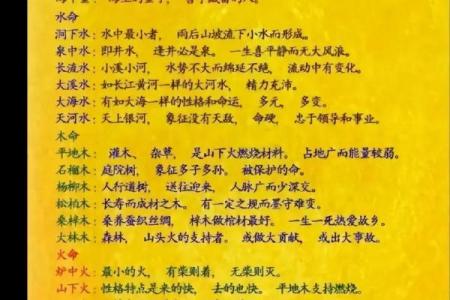 水命
涧下水：水中最小者， 雨后山坡流下小水而形成。
泉中水：即井水， 逢井必是泉。 一生喜平静而无大风浪。
长流水：小溪小河， 水势不大而绵延不绝， 流动中有变化。
大溪水：如长江黄河一样的大河水， 精力充沛。
大海水：有如大海一样的性格和命运， 多元、 多变。
天河水：天上银河， 象征没有天敌， 命硬， 忠于领导和事业。
木命
平地木： 灌木、 杂草， 是山下火燃烧材料。 占地广而能量较弱。
石榴木：庭院树， 象征多子多孙。 被保护的命。
杨柳木：人行道树， 送往迎来， 人脉广而少深交。
松柏木：长寿而成材之木。 有一定之规而墨守难变。
桑柘木：桑养蚕织丝绸， 柘木做棺材最好。 一生一死热爱故乡。
大林木：森林， 山头火的支持者。 或做大贡献， 或出大事故。
火命
炉中火：最小的火， 有柴则着， 无柴则灭。
山下火：性格特点是来的快， 去的也快。 平地木支持燃烧。